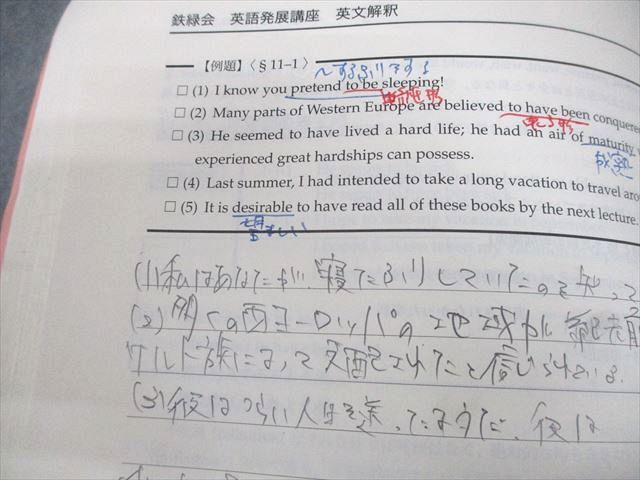 鉄緑会 英語発展講座 英文解釈
【例題】〈§11–1〉
〜するふりをする
□ (1) I know you pretend to be sleeping!
□ (2) Many parts of Western Europe are believed to have been conquere
□ (3) He seemed to have lived a hard life; he had an air of maturity,
成熟
experienced great hardships can possess.
□ (4) Last summer, I had intended to take a long vacation to travel aro
□ (5) It is desirable to have read all of these books by the next lecture.
望ましい
(1)私はあなたが、寝たふりしていたのを知って
(2) 多くの西ヨーロッパの地域が紀元前
ケルト族によって支配されたと信じられている
(3)彼はつらい人生を送ったようだ、彼は